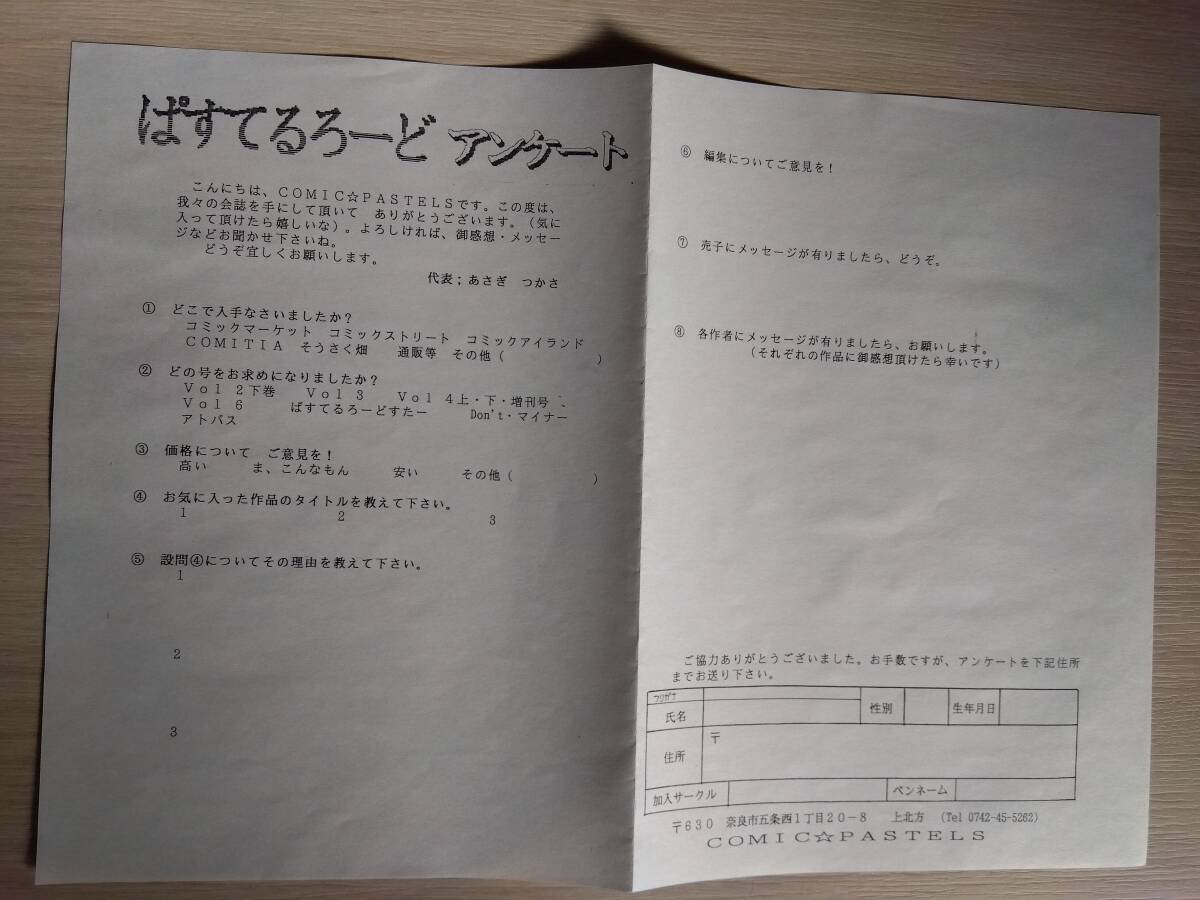 ぱすてるろーど アンケート
こんにちは、COMIC☆PASTELSです。この度は、
我々の会誌を手にして頂いて ありがとうございます。(気に
入って頂けたら嬉しいな)。よろしければ、御感想・メッセー
ジなどお聞かせ下さいね。
どうぞ宜しくお願いします。
代表;あさぎ つかさ
① どこで入手なさいましたか?
コミックマーケット コミックストリート コミックアイランド
COMITIA そうさく畑 通販等 その他( )
② どの号をお求めになりましたか?
Vol 2下巻 Vol 3 Vol 4上・下・増刊号
Vol 6 ぱすてるろーどすたー Don't・マイナー
アトバス
③ 価格について ご意見を!
高い ま、こんなもん 安い その他( )
④ お気に入った作品のタイトルを教えて下さい。
1 2 3
⑤ 設問④についてその理由を教えて下さい。
1
2
3
⑥ 編集についてご意見を!
⑦ 売子にメッセージが有りましたら、どうぞ。
⑧ 各作者にメッセージが有りましたら、お願いします。
(それぞれの作品に御感想頂けたら幸いです)
ご協力ありがとうございました。お手数ですが、アンケートを下記住所
までお送り下さい。
フリガナ
氏名 性別 生年月日
住所 〒
加入サークル ペンネーム
〒630 奈良市五条西1丁目20-8 上北方 (Tel 0742-45-5262)
COMIC☆PASTELS